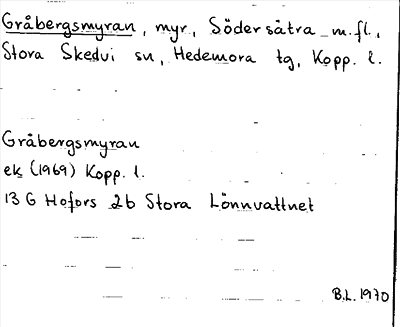 Gråbergsmyran, myr, Södersätra m.fl.,
Stora Skedvi sn, Hedemora tg, Kopp. l.
Gråbergsmyran
ek (1969) Kopp. l.
13 G Hofors 2b Stora Lönnvattnet
B.L. 1970